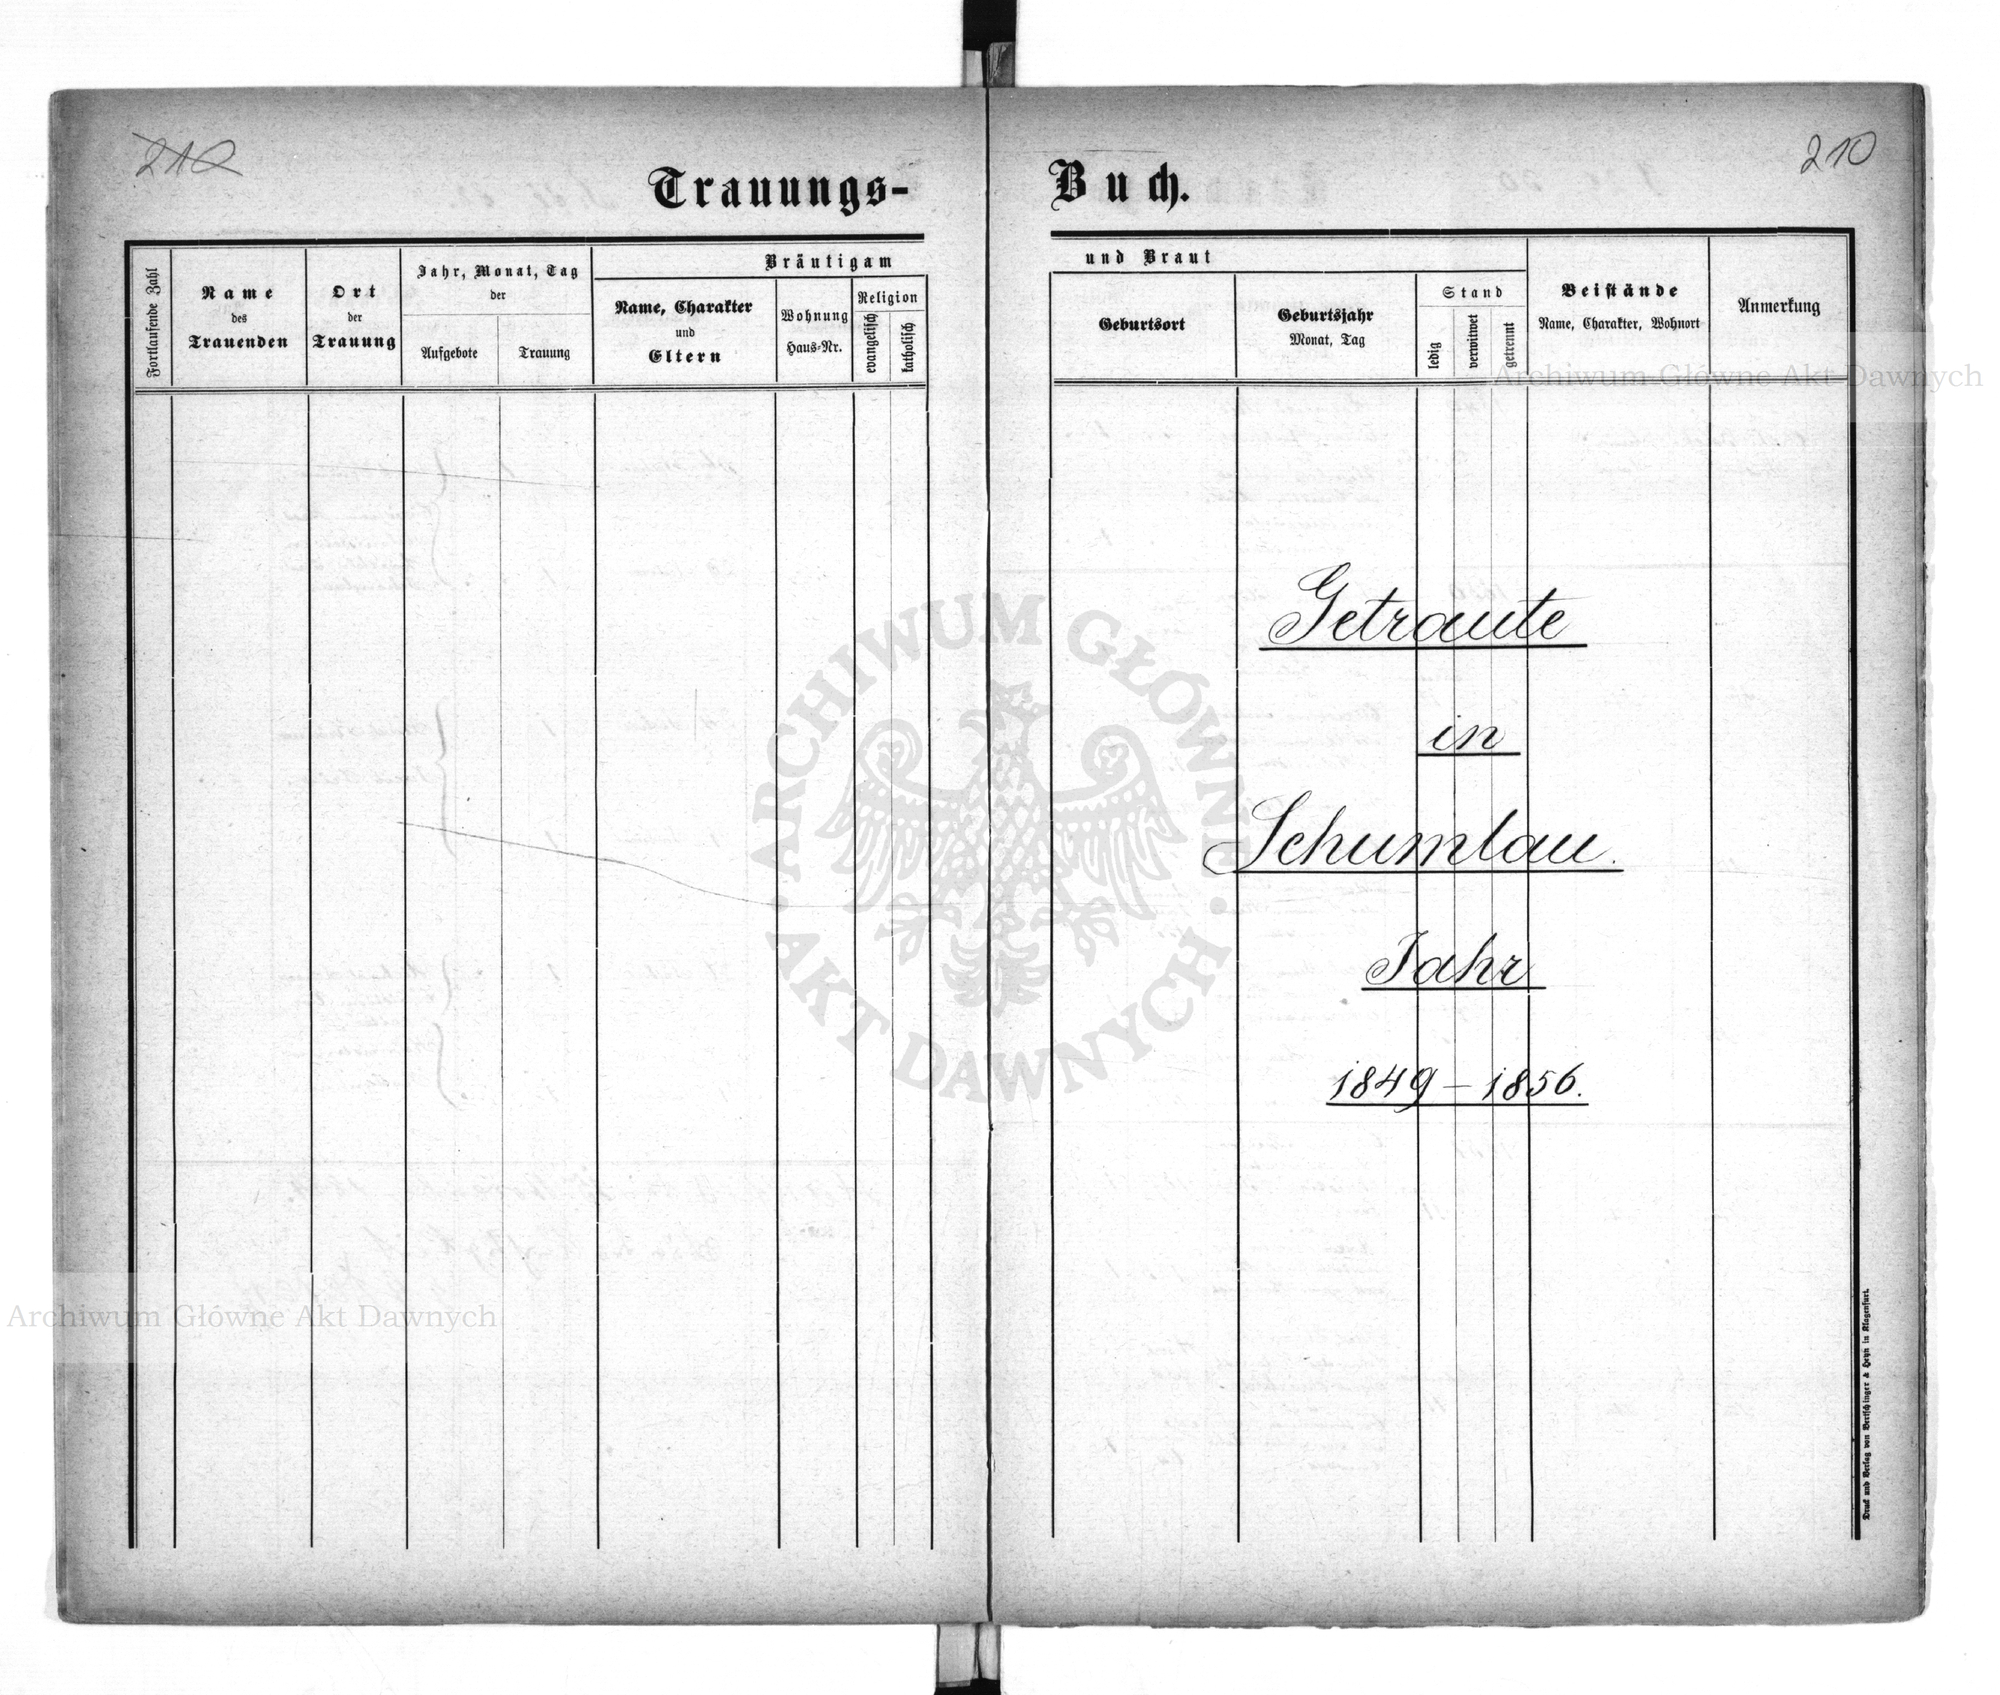 210
210
Trauungs-Buch.
Fortlaufende Zahl
Name
des
Trauenden
Ort
der
Trauung
Jahr, Monat, Tag
der
Aufgebote
Trauung
Bräutigam
Name, Charakter
und
Eltern
Wohnung
Haus-Nr.
Religion
evangelisch
katholisch
und Braut
Geburtsort
Geburtsjahr
Monat, Tag
Stand
ledig
verwitwet
getrennt
Beistände
Name, Charakter, Wohnort
Anmerkung
Archiwum Główne Akt Dawnych
Getraute
in
Schumlau.
Jahr
1849 – 1856.
ARCHIWUM GŁÓWNE AKT DAWNYCH
Archiwum Główne Akt Dawnych
Druck und Verlag von Bertschinger & Heyn in Klagenfurt.